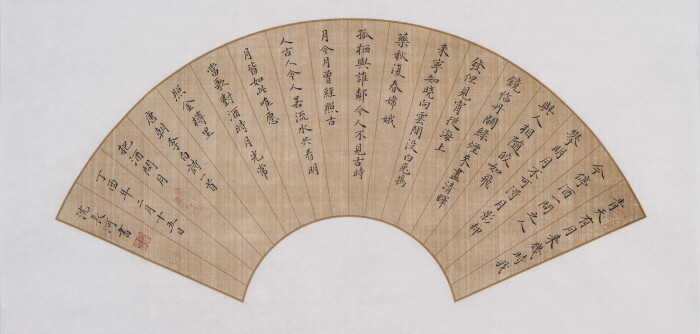 青天有月来幾時我
今停酒一問之人
攀明月不可得月影卻
與人相隨皎如飛
鏡臨丹闕綠煙来盡清暉
發但見宵從海上
来寧知曉向雲間没白兔搗
藥秋復春嫦娥
孤栖與誰鄰今人不見古時
月今月曾經照古
人古人今人若流水共看明
月皆如此唯愿
當歌對酒時月光常
照金樽里
唐朝李白詩一首
把酒問月
丁酉年二月十五日